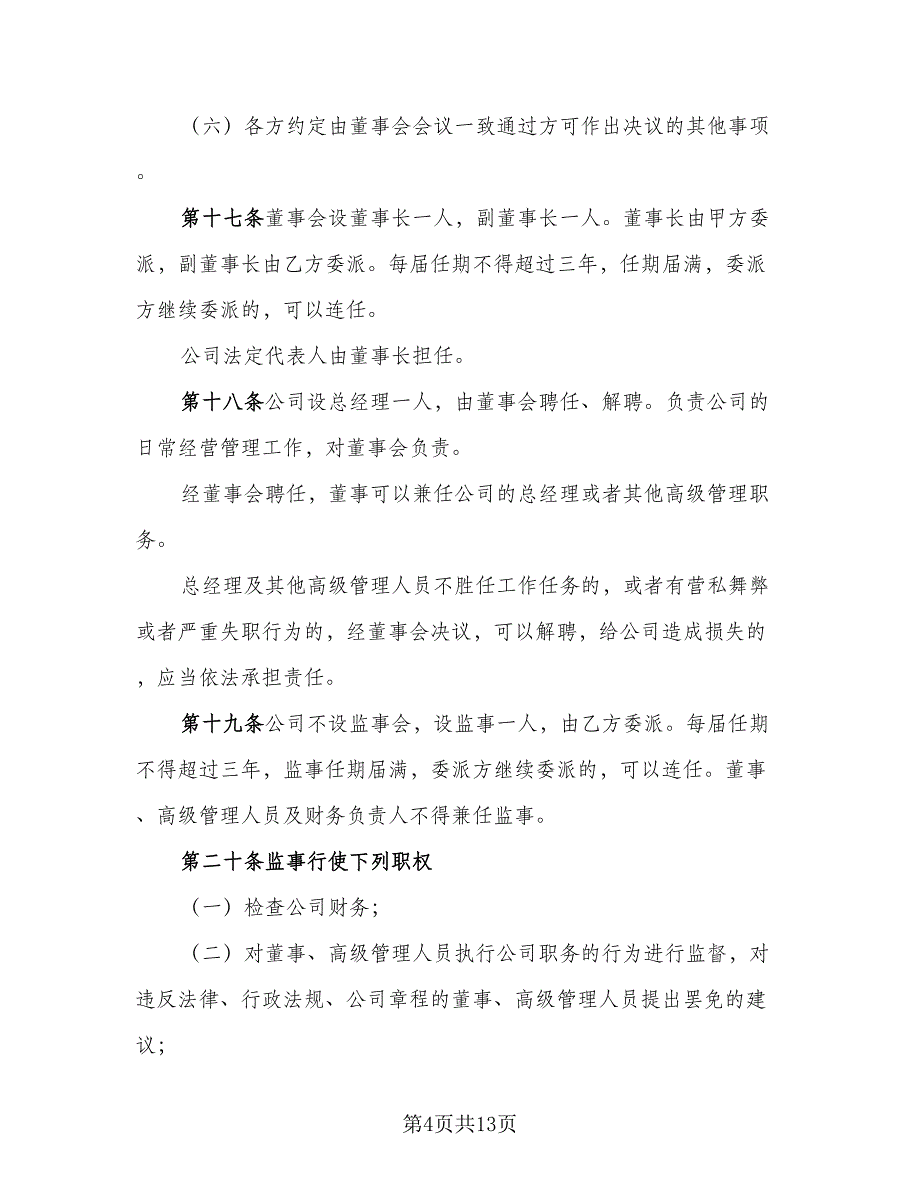 （六）各方约定由董事会会议一致通过方可作出决议的其他事项
。
第十七条董事会设董事长一人，副董事长一人。董事长由甲方委
派，副董事长由乙方委派。每届任期不得超过三年，任期届满，委派
方继续委派的，可以连任。
公司法定代表人由董事长担任。
第十八条公司设总经理一人，由董事会聘任、解聘。负责公司的
日常经营管理工作，对董事会负责。
经董事会聘任，董事可以兼任公司的总经理或者其他高级管理职
务。
总经理及其他高级管理人员不胜任工作任务的，或者有营私舞弊
或者严重失职行为的，经董事会决议，可以解聘，给公司造成损失的
，应当依法承担责任。
第十九条公司不设监事会，设监事一人，由乙方委派。每届任期
不得超过三年，监事任期届满，委派方继续委派的，可以连任。董事
、高级管理人员及财务负责人不得兼任监事。
第二十条监事行使下列职权
（一）检查公司财务；
（二）对董事、高级管理人员执行公司职务的行为进行监督，对
违反法律、行政法规、公司章程的董事、高级管理人员提出罢免的建
议；
第4页共13页